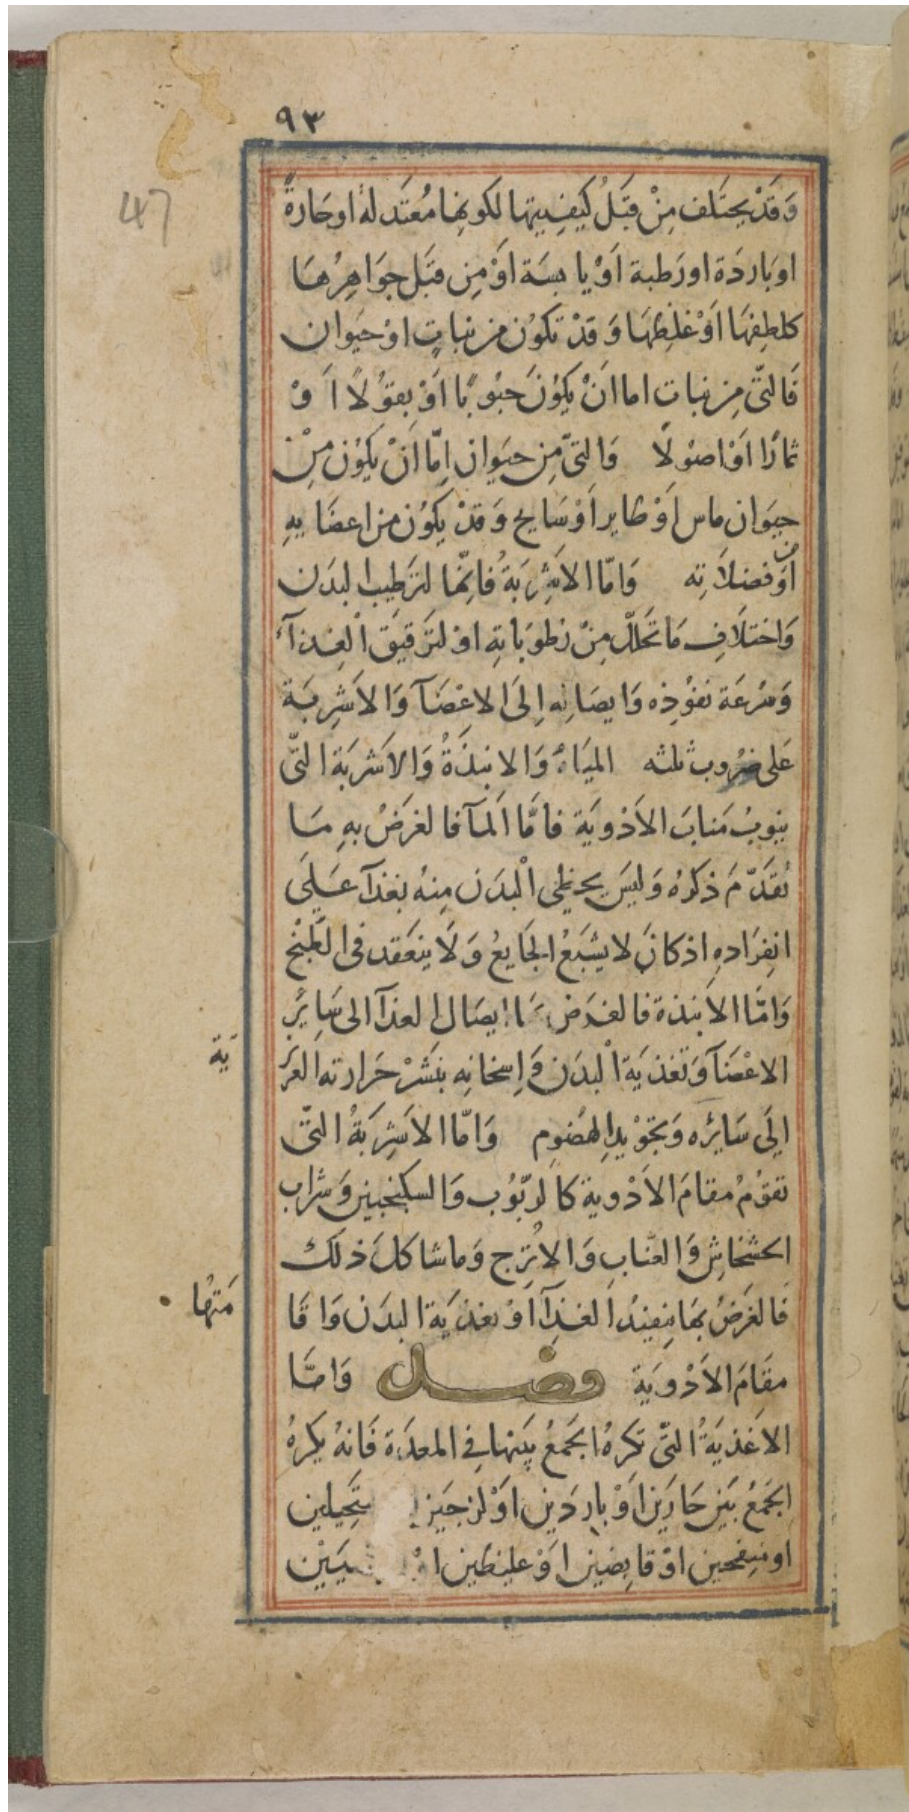 ٩٣
47
وَقَدْ يختَلف مِنْ قبَلُ كيَفِيتها لكونِها مُعتَدلهً اوحَارةً
اوبَاردَة اورَطبة اَوْ يابسَة اوَمِن قبَل جوَاهِرُهَا
كلطفِهَا اَوْ غلِظهَا وَقدْ تكوُن من نباتٍ اوْ حيَوان
فَالتّى مِن نبات اما انَ يكوُنَ حبُوبًا اوَْ بقوُلاً اَوْ
ثمارًا اوَْاصوُلًا وَالتىّ مِن حيَوانٍ اِمّا اَنْ يكوُن مِنْ
حيَوان ماس اَوْ طاير اَوْ سَابح وَقدْ يكوُن من اعضَايهِ
اَوْ من فضلاَتِه وَامّا الاَشِرِبَةُ فانِّها لترَطيب البدَن
وَاختلاَفِ مَا تحَللّ مِنْ رطوُبَاتِهِ اوْ لترَقيَق الْغِذآءِ
وَسُرعَة نفوُذِه وَايصَالِه اِلىَ الاعْضَآ وَالاَشرِبَة
عَلى ضرُوب ثلثه الميَاهُ وَالانبذَةُ وَالاَشربَة التىّ
ينوبُ مَنابَ الاَدْويَة فامَّا اَلمآ فالغرَضُ بهِ مَا
تقَدَّمَ ذكرُهُ وَليسَ يحظى الْبدَن مِنهُ بغذآ عَلىَ
انِفرَادهِ اذكانَ لايشبَعُ الجَايعُ وَلَا ينعَقد فى الطَبْخ
وَامَّا الاَنبذة فالغرَض بهَا ايصَال الغذآ الى سَايِرَ
الاعْضَآ وَتغذيَة الْبدَن وَاِسخانِهِ بنَشرْ حَرارته الغرَيَة
اِلىَ سَايرَه وَتجَوْيدِ الهضُومِ وَامّا الاَشرِبَةُ التىّ
تقوُمُ مقامَ الاَدْوية كالرّبوُب وَالسكنجبين وَشراب
الخشخاشِ وَالعنّابِ وَالاُترُج وَماشاكلَ ذلك
فَالغرَضُ بهَا تنِفيذُ اَلغذِآ اَوْ تغذيَة البدَن وَاقامَتهُا
مقَامَ الاَدْويَة فصل وَامّا
الاَغذيَةُ التىّ تكرهُ الجَمْعُ بيَنها فِى المعدَة فَانهُ يكرهُ
الجَمَعُ بيَن حَارَين اَوْ باردَين اوَْ لزجَين ستَحِيلين
اَومنِفخين اوْ قابضين اوَْ غليظين